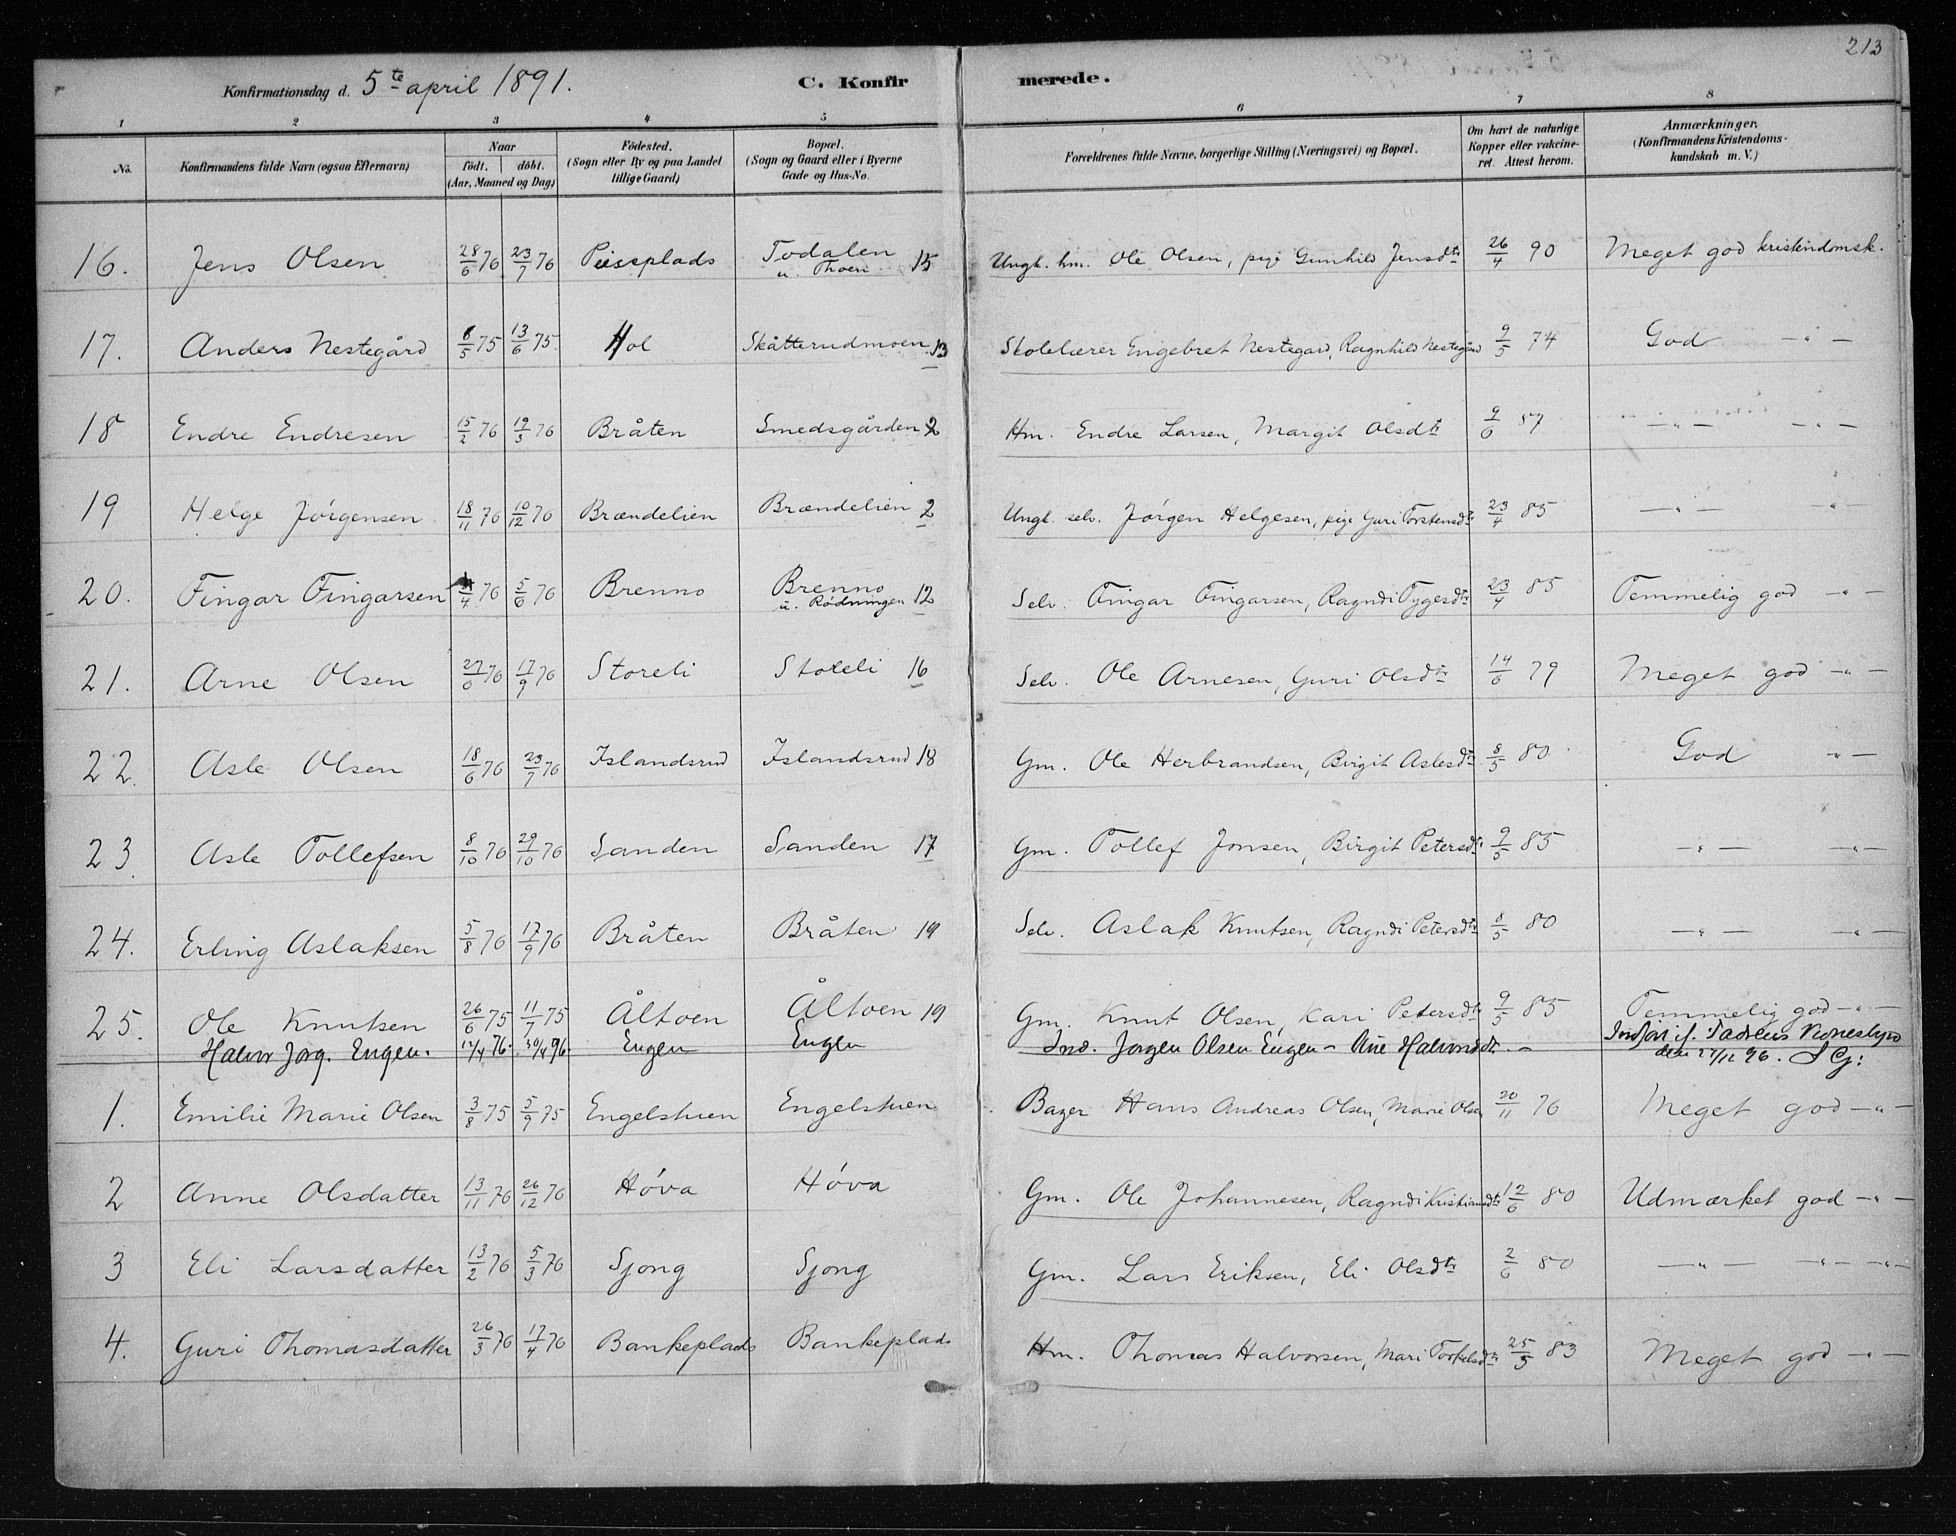 213
Konfirmationsdag d. 5te april 1891. C. Konfirmerede.
1 2 3 4 5 6 7 8
No. Konfirmandens fulde Navn (ogsaa Efternavn) Naar født. døbt. (Aar, Maaned og Dag) Fødested. (Sogn eller By og paa Landet tillige Gaard) Bopæl. (Sogn og Gaard eller i Byerne Gade og Hus-No. Forældrenes fulde Navne, borgerlige Stilling (Næringsvei) og Bopæl. Om havt de naturlige Kopper eller vakcineret. Attest herom. Anmærkninger. (Konfirmandens Kristendomskundskab m. V.)
16. Jens Olsen 28/6 76 23/7 76 Todalen u. Thoen 15 Ungk. hm. Ole Olsen, pige Gunhild Jensdtr 26/4 90 Meget god kristendomsk.
17. Anders Nestegård 6/5 75 13/6 75. Hol Skåtterudmoen 13 Skolelærer Engebret Nestegard, Ragnhild Nestegård 9/5 74 God -"-
18 Endre Endresen 15/2 76 19/3 76 Bråten Smedsgården 2 Hm. Endre Larsen, Margit Olsdtr 9/6 87 -"- -"-
19 Helge Jørgensen 18/11 76 10/12 76 Brændelien Brændelien 2 Ungk. selv. Jørgen Helgesen, pige Guri Torstensdtr 23/4 85 -"- "-
20. Fingar Fingarsen /4 76 5/6 76 Brenno Brenno u. Rødningen 12 Selv. Fingar Fingarsen, Ragndi Tygesdtr 23/4 85 Temmelig god -"-
21. Arne Olsen 27/6 76 17/9 76 Storeli Storeli 16 Selv. Ole Arnesen, Guri Olsdtr 14/6 79 Meget god -"-
22. Asle Olsen 18/6 76 23/7 76 Islandsrud Islandsrud 18 Gm. Ole Herbrandsen, Birgit Aslesdtr 8/5 80 God "-
23. Asle Tollefsen 8/10 76 29/10 76 Sanden Sanden 17 Gm. Tollef Jonsen, Birgit Petersdtr 9/5 85 -"- -"-
24. Erling Aslaksen 5/8 76 17/9 76 Bråten Bråten 19 Selv. Aslak Knutsen, Ragndi Petersdtr 8/5 80 -"- -"-
25. Ole Knutsen 26/6 75 11/7 75 Åltoen Åltoen 19 Gm. Knut Olsen, Kari Petersdtr 9/5 85 Temmelig god -"-
Halvor Jørg. Engen. 12/4 76. 30/4 96 Engen Engen Ind. Jørgen Olsen Engen - Ane Halvorsdtr. - Indført if.
den 27/12 96. S G:
1. Emilie Marie Olsen 3/8 75 5/9 75 Engelstuen Engelstuen Bager Hans Andreas Olsen, Marie Olsen 20/11 76 Meget god -"-
2 Anne Olsdatter 13/11 76 26/12 76 Høva Høva Gm. Ole Johannesen, Ragndi Kristiansdtr 12/6 80 Udmærket god -"-
3 Eli Larsdatter 13/2 76 5/3 76 Sjong Sjong Gm. Lars Eriksen, Eli Olsdtr 2/6 80 -"- -"- -"-
4. Guri Thomasdatter 26/3 76 17/4 76 Bankeplads Bankeplads Hm. Thomas Halvorsen, Mari Torkelsdtr 25/5 83 Meget god -"-